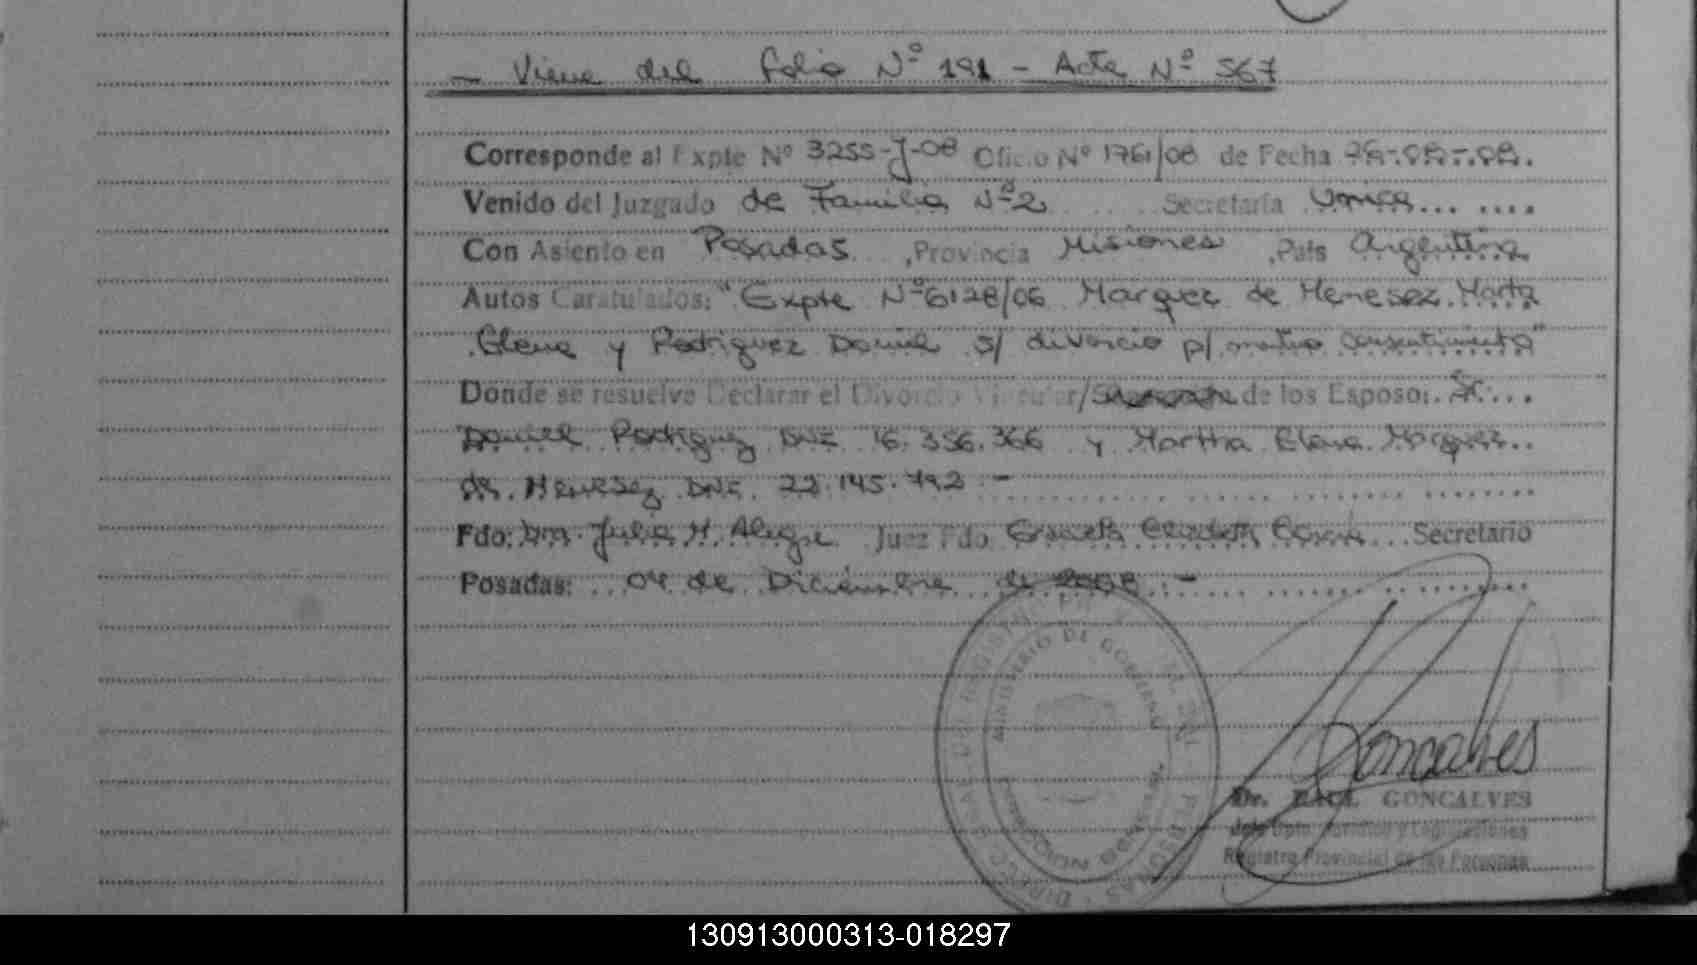 - Viene del folio Nº 191 - Acta Nº 567
Corresponde al Expte Nº 3255-J-08 Oficio Nº 1761/08 de Fecha
Venido del Juzgado de Familia Nº 2 Secretaría Unica
Con Asiento en Posadas, Provincia Misiones, País Argentina
Autos Caratulados: "Expte Nº 6128/06 Marquez de Menesez Marta
Elena y Rodriguez Daniel s/ divorcio p/ mutuo consentimiento"
Donde se resuelve Declarar el Divorcio Vincular/ de los Esposos: Sr.
Daniel Rodriguez DNI 16.356.366 y Martha Elena Marquez
de Menesez DNI. 22.145.792.-
Fdo: Dra. Julia M. Alegre Juez Fdo Graciela Elizabeth Secretario
Posadas: 04 de Diciembre de 2008.-
MINISTERIO DE GOBIERNO
PERSONAS
Goncalves
Dr. RAUL GONCALVES
Jefe Dpto. Jurídico y Legalizaciones
Registro Provincial de las Personas
130913000313-018297